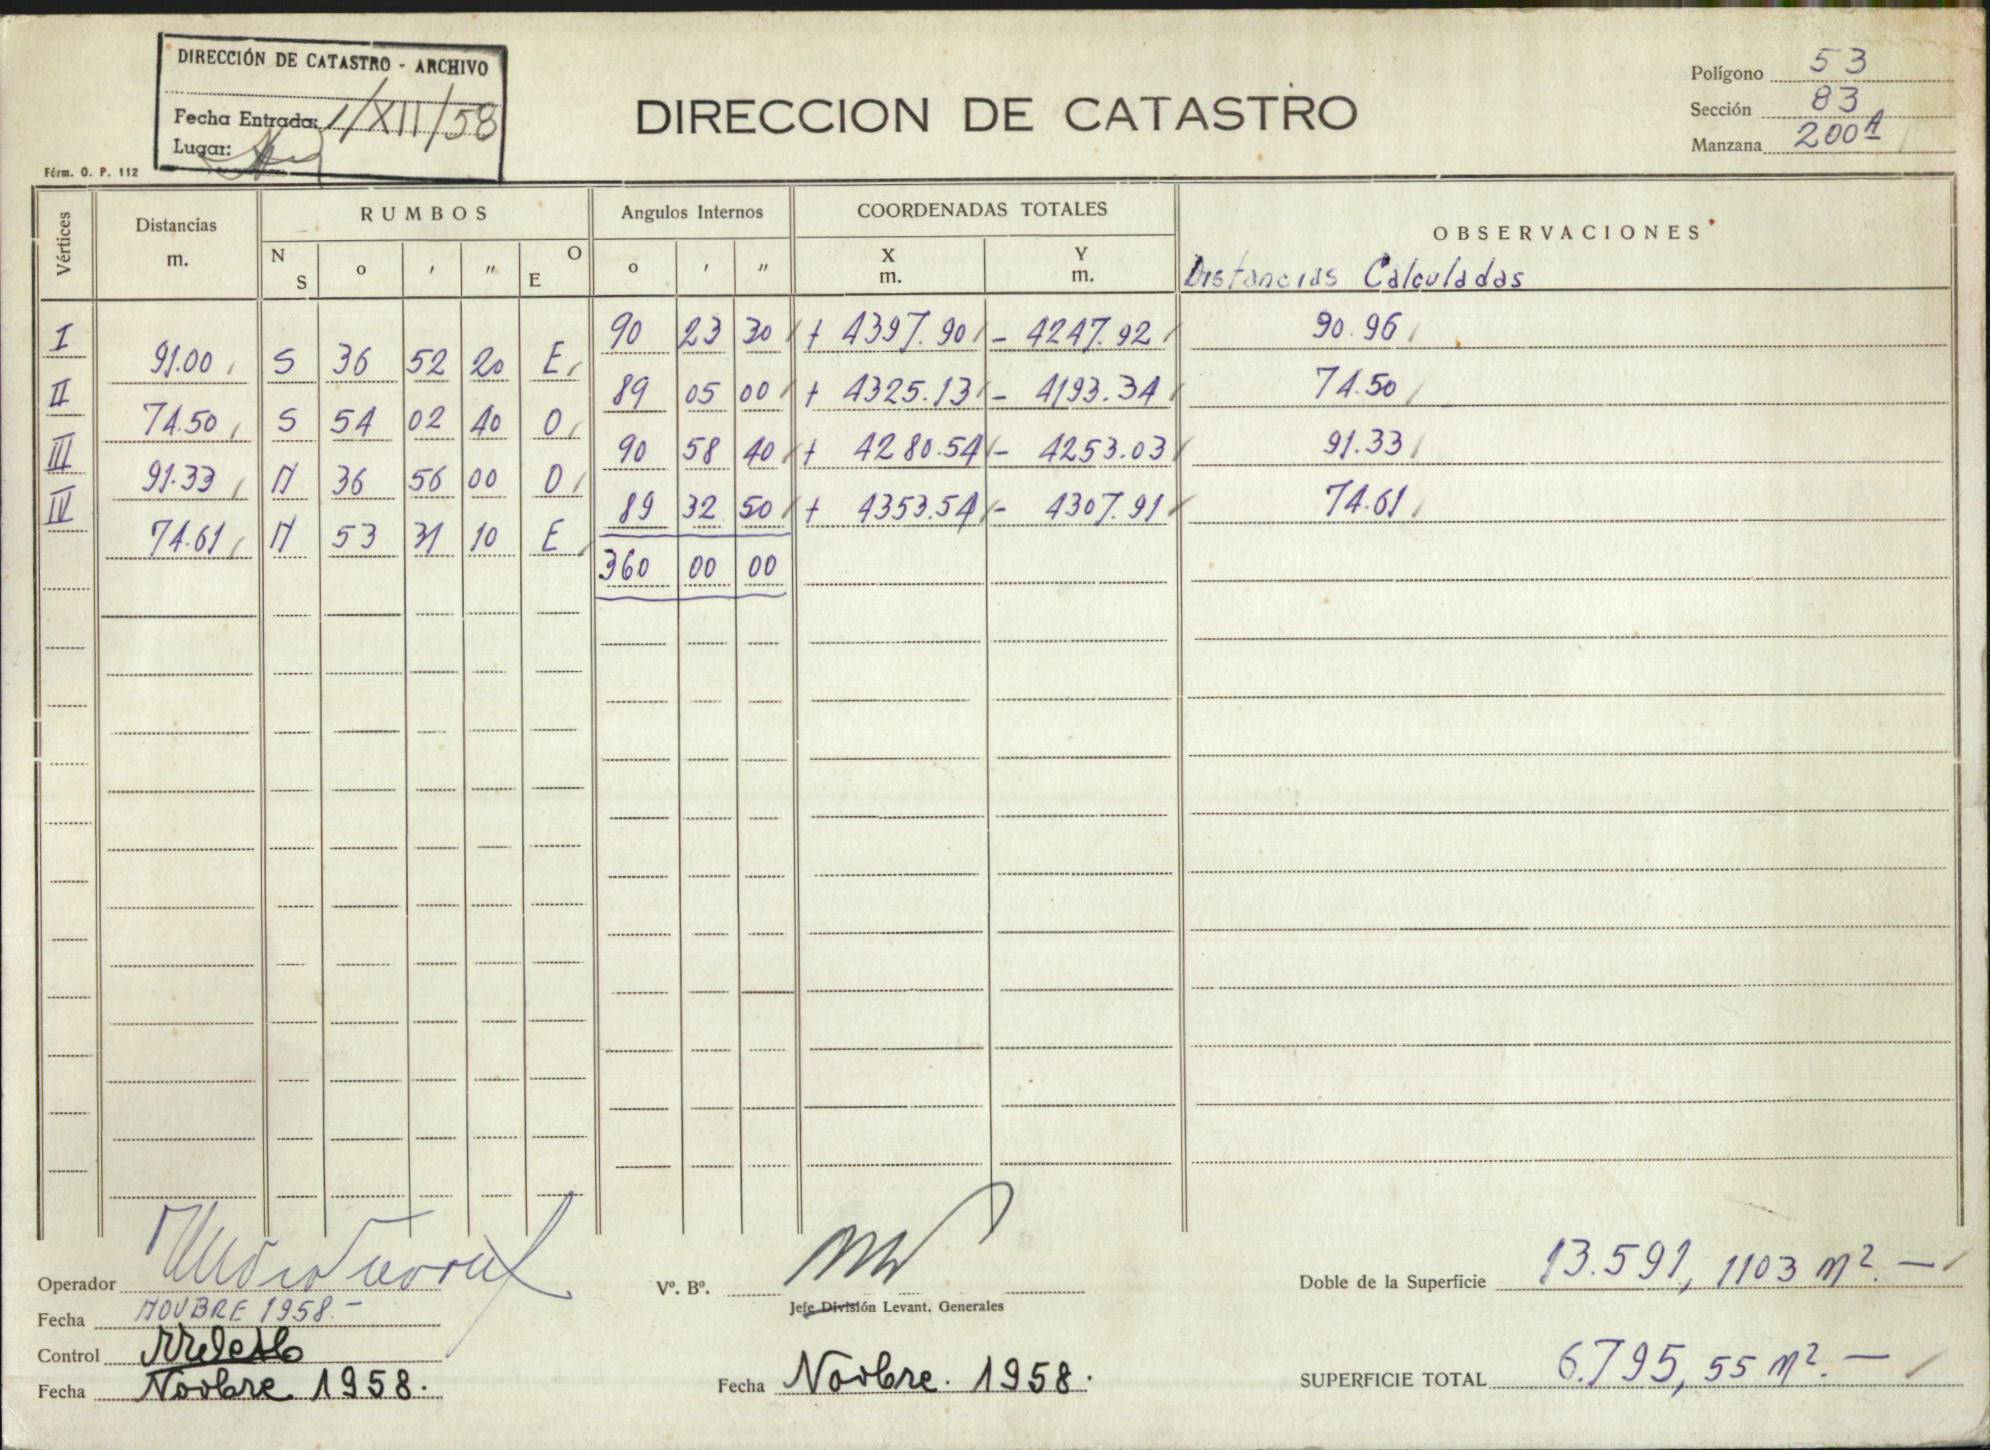 DIRECCIÓN DE CATASTRO - ARCHIVO
Fecha Entrada: 1/XII/58
Lugar:
Férm. O. P. 112
DIRECCION DE CATASTRO
Polígono 53
Sección 83
Manzana 200 A
Vértices Distancias m. RUMBOS Angulos Internos COORDENADAS TOTALES OBSERVACIONES
N S o ' " O E o ' " X m. Y m. Distancias Calculadas
I 90 23 30 + 4397.90 - 4247.92 90.96
91.00 S 36 52 20 E
II 89 05 00 + 4325.13 - 4193.34 74.50
74.50 S 54 02 40 O
III 90 58 40 + 4280.54 - 4253.03 91.33
91.33 N 36 56 00 O
IV 89 32 50 + 4353.54 - 4307.91 74.61
74.61 N 53 31 10 E
360 00 00
Operador
Fecha NOVBRE 1958.-
Control
Fecha Novbre 1958.
Vº. Bº.
Jefe División Levant. Generales
Fecha Novbre. 1958.
Doble de la Superficie 13.591,1103 m². —
SUPERFICIE TOTAL 6.795,55 m². —